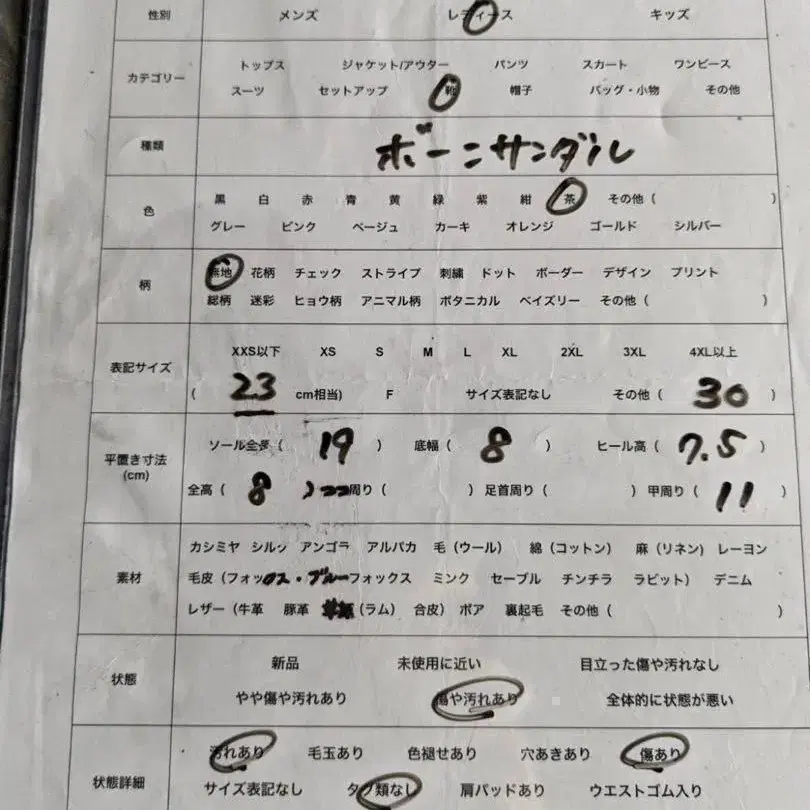 性別 メンズ レディース キッズ
カテゴリー
トップス ジャケット/アウター パンツ スカート ワンピース
スーツ セットアップ 靴 帽子 バッグ・小物 その他
種類 ボーニサンダル
色
黒 白 赤 青 黄 緑 紫 紺 茶 その他 ( )
グレー ピンク ベージュ カーキ オレンジ ゴールド シルバー
柄
無地 花柄 チェック ストライプ 刺繍 ドット ボーダー デザイン プリント
総柄 迷彩 ヒョウ柄 アニマル柄 ボタニカル ペイズリー その他 ( )
表記サイズ
XXS以下 XS S M L XL 2XL 3XL 4XL以上
( 23 cm相当) F サイズ表記なし その他 ( 30 )
平置き寸法
(cm)
ソール全長 ( 19 ) 底幅 ( 8 ) ヒール高 ( 7.5 )
全高 ( 8 ) 周り ( ) 足首周り ( ) 甲周り ( 11 )
素材
カシミヤ シルク アンゴラ アルパカ 毛 (ウール) 綿 (コットン) 麻 (リネン) レーヨン
毛皮 (フォックス・ブルーフォックス ミンク セーブル チンチラ ラビット) デニム
レザー (牛革 豚革 (ラム) 合皮) ボア 裏起毛 その他 ( )
状態
新品 未使用に近い 目立った傷や汚れなし
やや傷や汚れあり 傷や汚れあり 全体的に状態が悪い
状態詳細
汚れあり 毛玉あり 色褪せあり 穴あきあり 傷あり
サイズ表記なし タグ類なし 肩パッドあり ウエストゴム入り